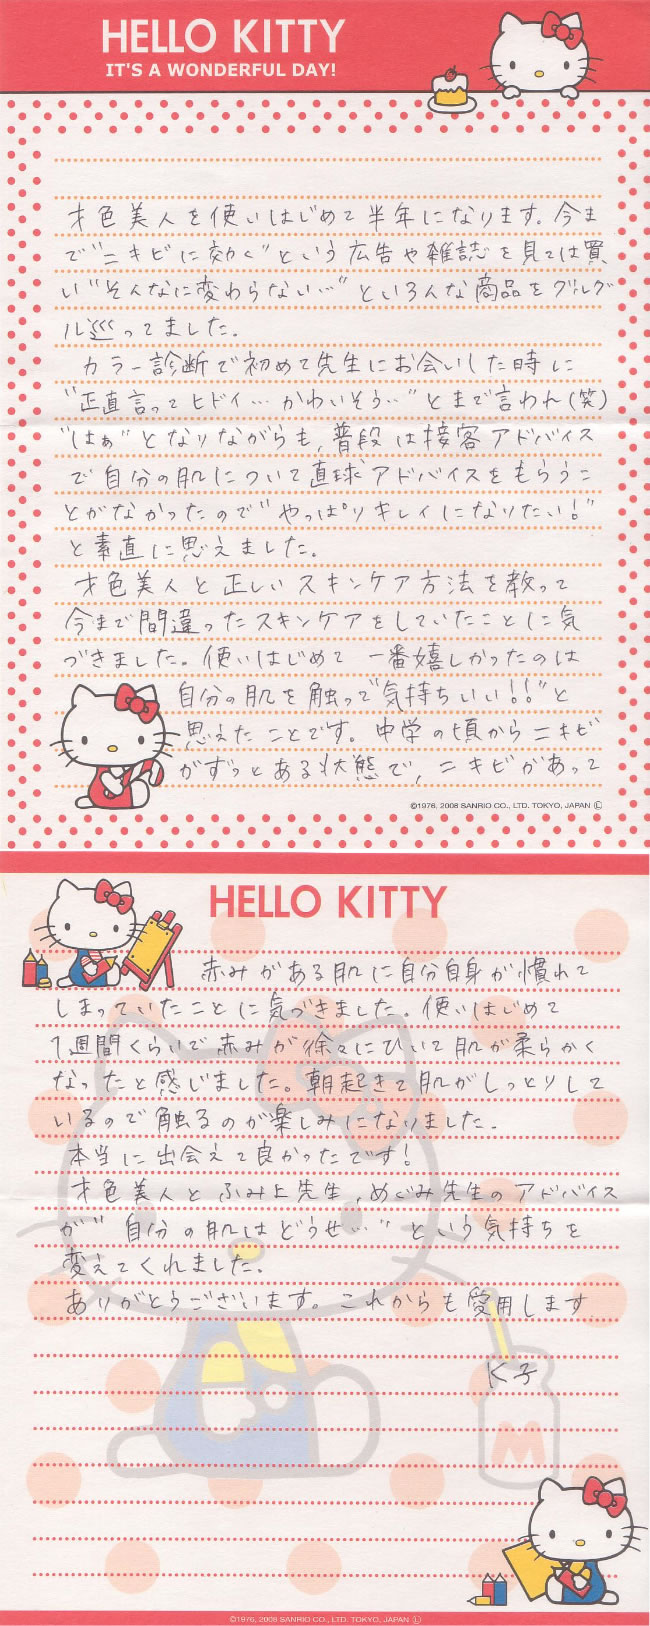 HELLO KITTY
IT'S A WONDERFUL DAY!
才色美人を使いはじめて半年になります。今ま
で"ニキビに効く"という広告や雑誌を見ては買
い"そんなに変わらない…"といろんな商品をグルグ
ル巡ってました.
カラー診断で初めて先生にお会いした時に
"正直言ってヒドイ…かわいそう…"とまで言われ(笑)
"はぁ"となりながらも,普段は接客アドバイス
で自分の肌について直球アドバイスをもらうこ
とがなかったので"やっぱりキレイになりたい!"
と素直に思えました.
才色美人と正しいスキンケア方法を教って
今まで間違ったスキンケアをしていたことに気
づきました。使いはじめて一番嬉しかったのは
自分の肌を触って"気持ちいい!!"と
思えたことです。中学の頃からニキビ
がずっとある状態で,ニキビがあって
©1976, 2008 SANRIO CO., LTD. TOKYO, JAPAN Ⓛ
HELLO KITTY
赤みがある肌に自分自身が慣れて
しまっていたことに気づきました。使いはじめて
1週間くらいで赤みが徐々にひいて肌が柔らかく
なったと感じました。朝起きて肌がしっとりして
いるので触るのが楽しみになりました.
本当に出会えて良かったです!
才色美人とふみ上先生,めぐみ先生のアドバイス
が"自分の肌はどうせ…"という気持ちを
変えてくれました.
ありがとうございます。これからも愛用します
K子
M
©1976, 2008 SANRIO CO., LTD. TOKYO, JAPAN Ⓛ